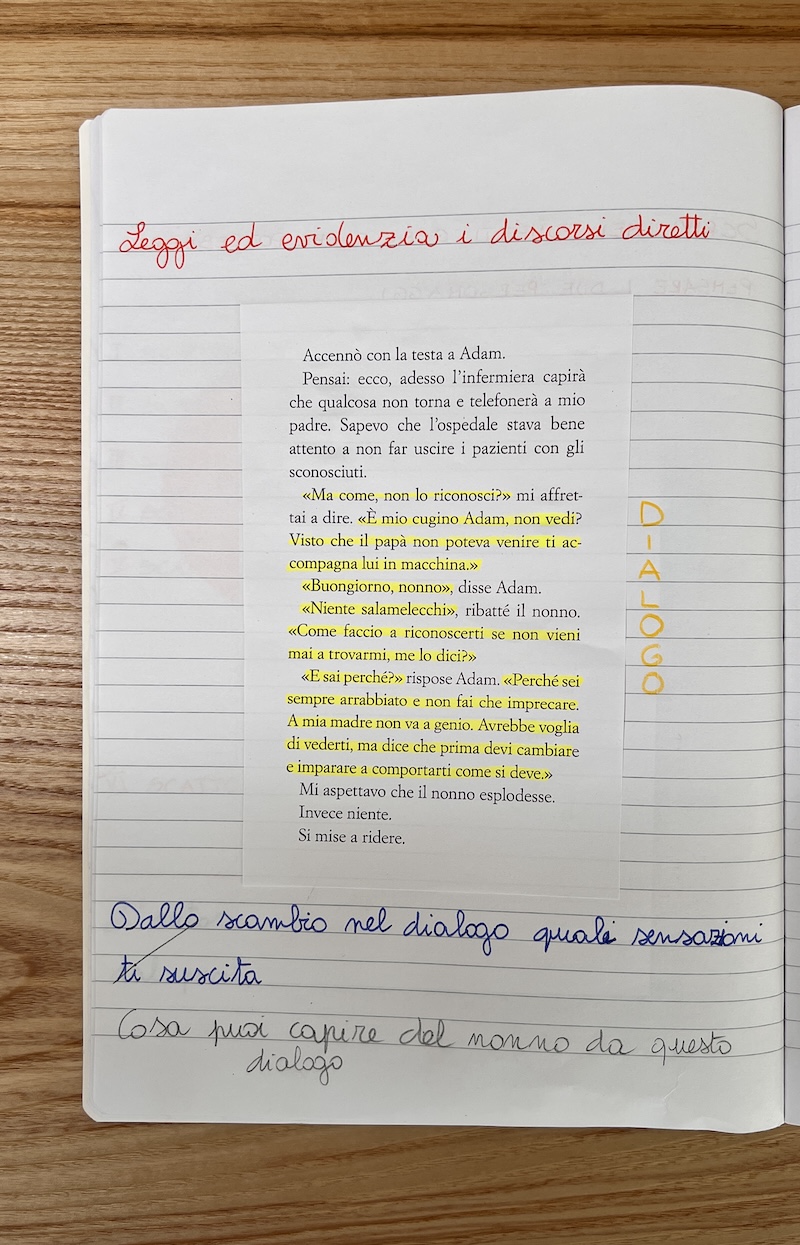 Leggi ed evidenzia i discorsi diretti
Accennò con la testa a Adam.
Pensai: ecco, adesso l'infermiera capirà
che qualcosa non torna e telefonerà a mio
padre. Sapevo che l'ospedale stava bene
attento a non far uscire i pazienti con gli
sconosciuti.
«Ma come, non lo riconosci?» mi affret-
tai a dire. «È mio cugino Adam, non vedi?
Visto che il papà non poteva venire ti ac-
compagna lui in macchina.»
«Buongiorno, nonno», disse Adam.
«Niente salamelecchi», ribatté il nonno.
«Come faccio a riconoscerti se non vieni
mai a trovarmi, me lo dici?»
«E sai perché?» rispose Adam. «Perché sei
sempre arrabbiato e non fai che imprecare.
A mia madre non va a genio. Avrebbe voglia
di vederti, ma dice che prima devi cambiare
e imparare a comportarti come si deve.»
Mi aspettavo che il nonno esplodesse.
Invece niente.
Si mise a ridere.
D
I
A
L
O
G
O
Dallo scambio nel dialogo quali sensazioni
ti suscita
Cosa puoi capire del nonno da questo
dialogo